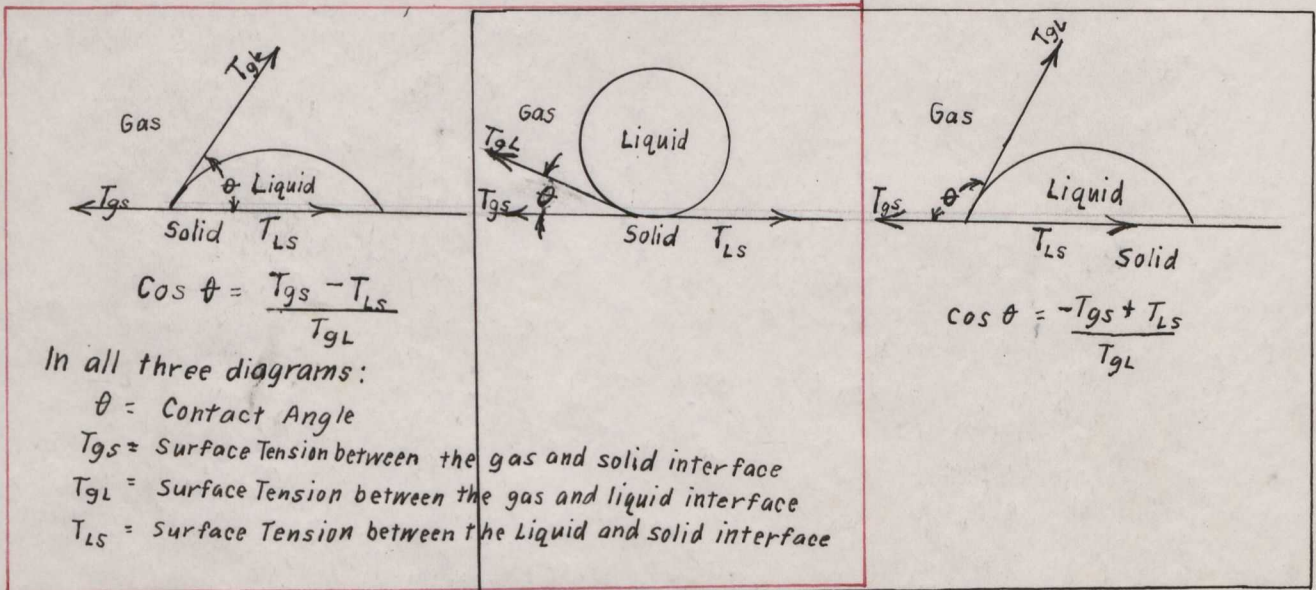 TgL
Gas
θ Liquid
Tgs
Solid TLS
Cos θ = Tgs - TLS
TgL
Gas
Liquid
TgL
θ
Tgs
Solid TLS
TgL
Gas
θ Liquid
Tgs
TLS
Solid
cos θ = -Tgs + TLS
TgL
In all three diagrams:
θ = Contact Angle
Tgs = Surface Tension between the gas and solid interface
TgL = Surface Tension between the gas and liquid interface
TLS = Surface Tension between the Liquid and solid interface